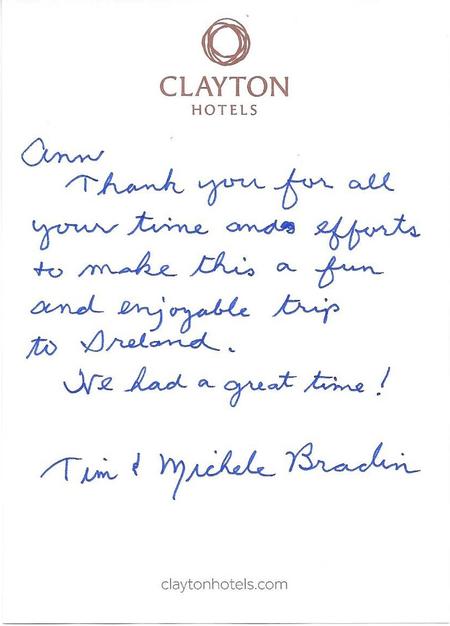 CLAYTON
HOTELS
Ann
Thank you for all
your time and efforts
to make this a fun
and enjoyable trip
to Ireland.
We had a great time!
Tim & Michele Bradin
claytonhotels.com